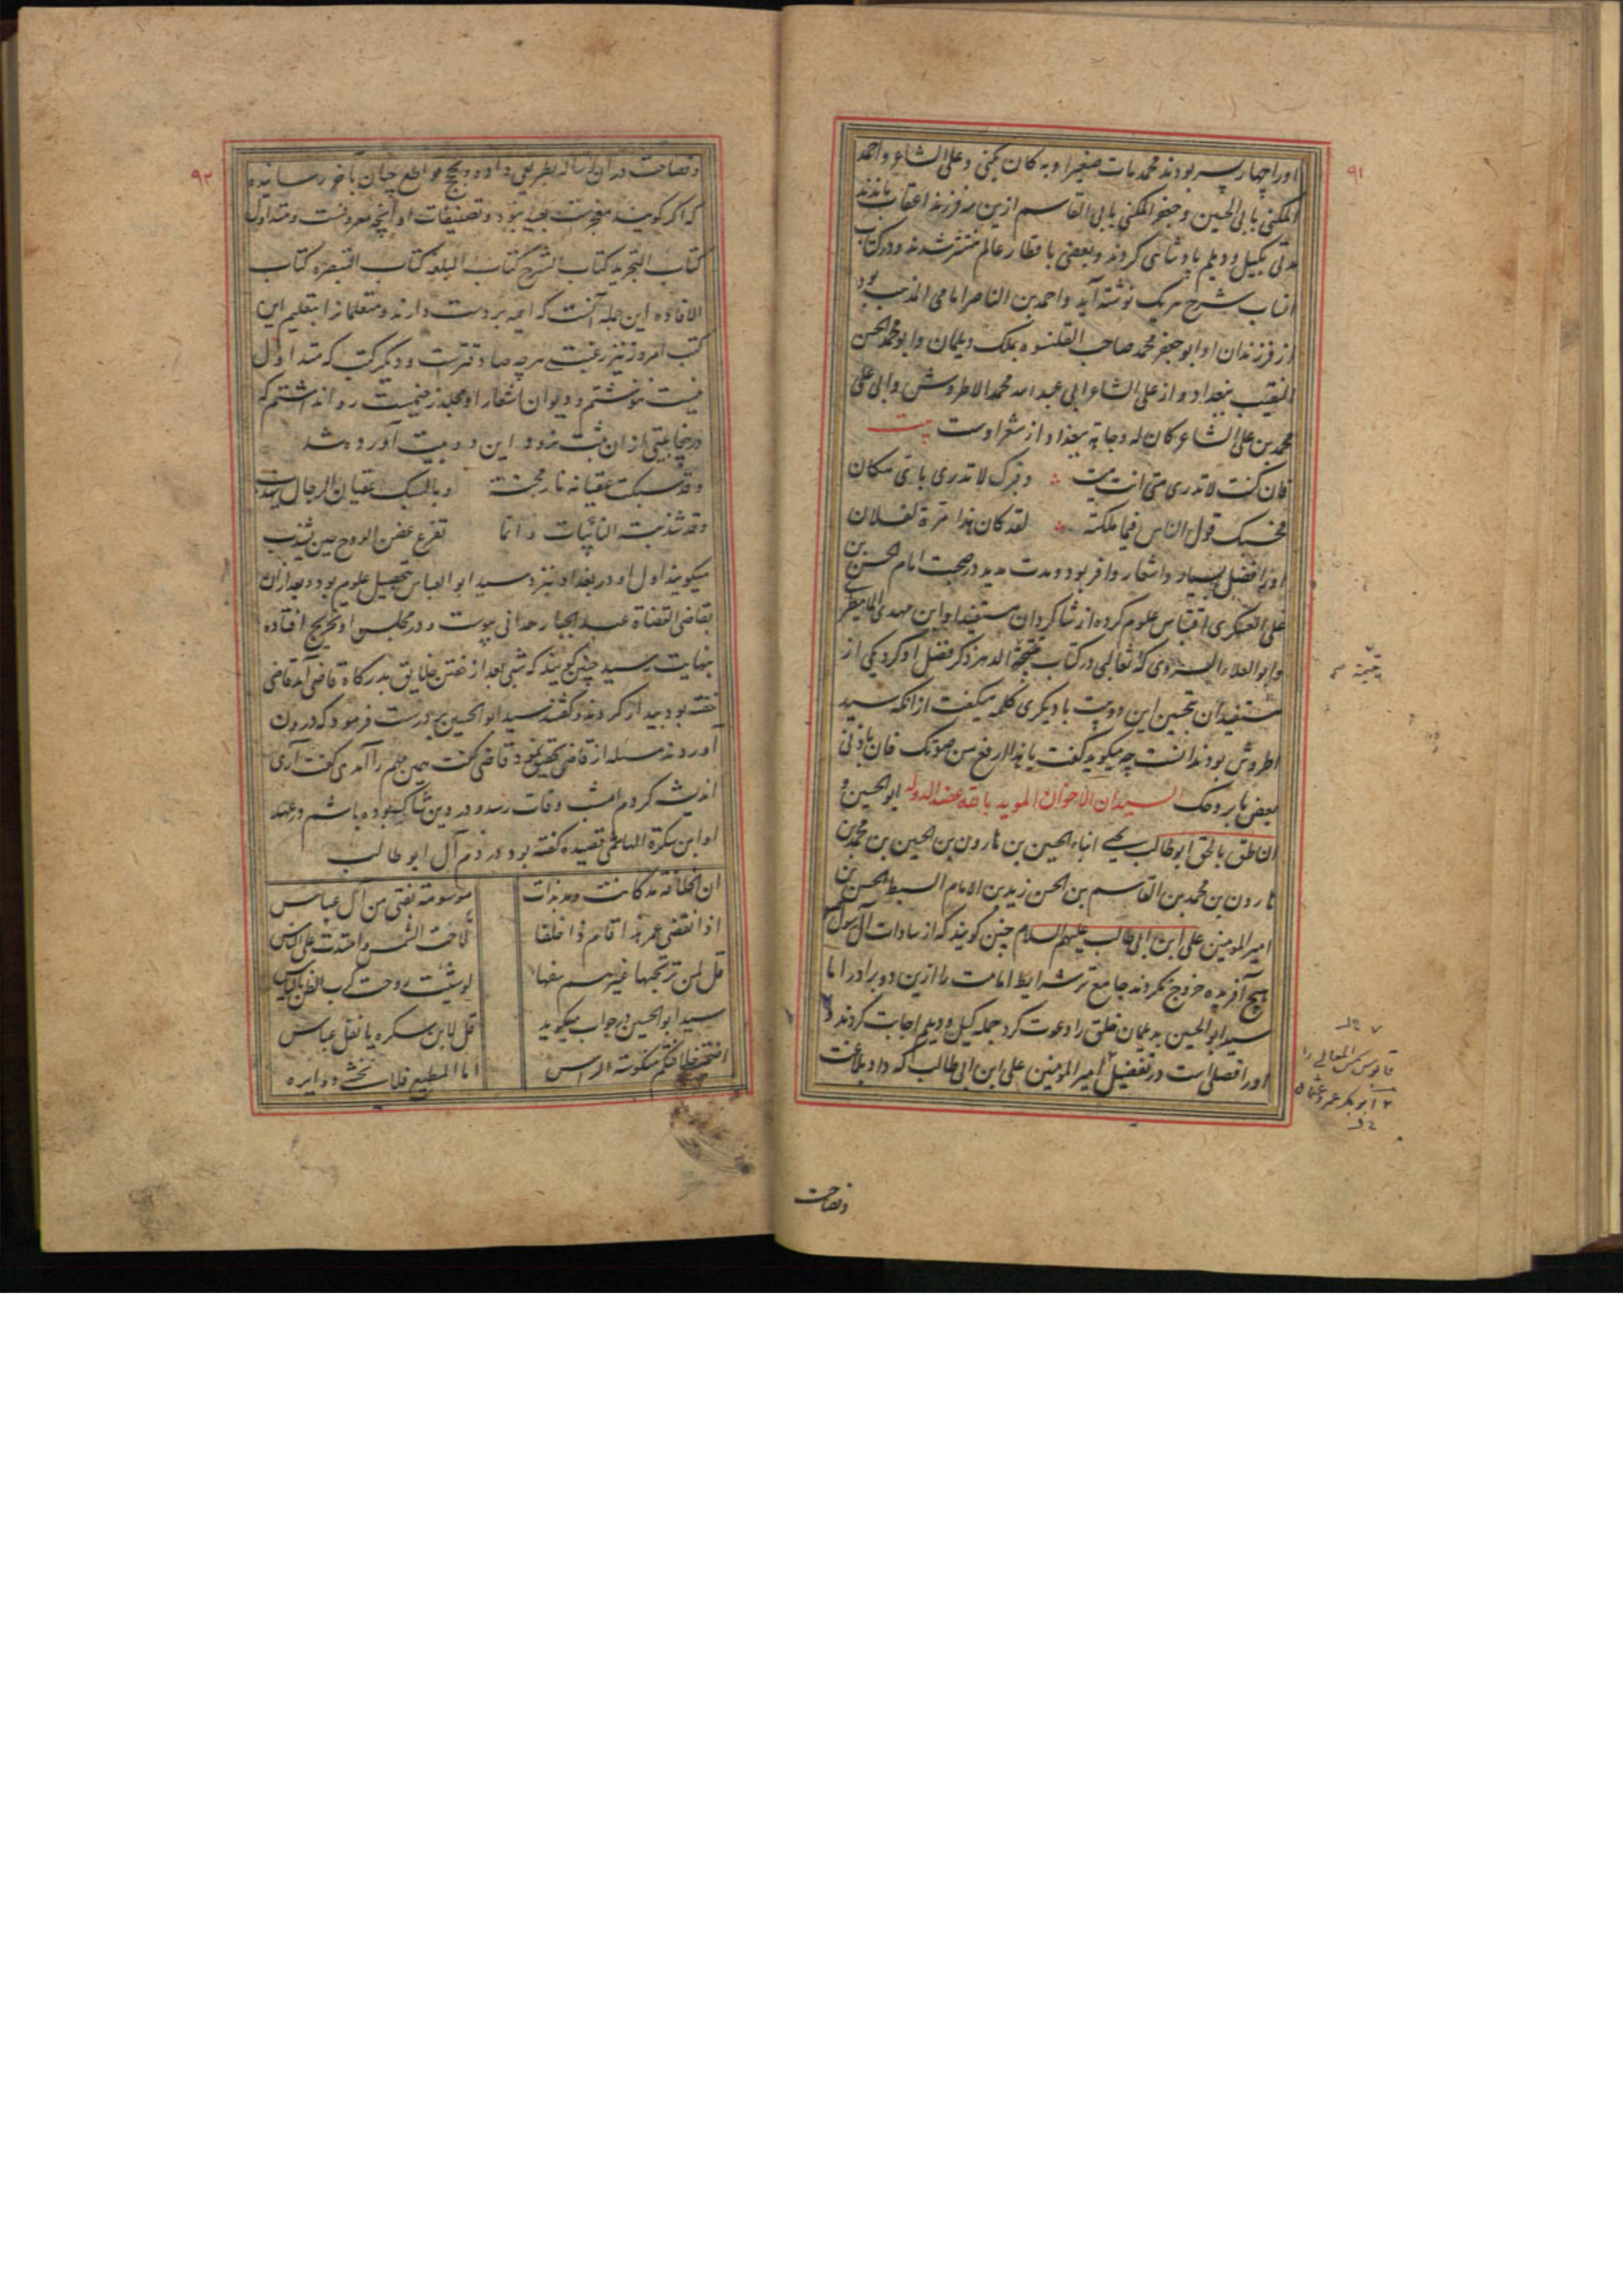 ۹۱
اورا چهار پسر بودند محمد مات صغیرا و به کان یکنی و علی الشاعر و احمد
المکنی بابی الحسین و جعفر المکنی بابی القاسم ازین سه فرزند اعقاب ماندند
مدتی بگیل و دیلم پادشاهی کردند و بعضی باقطار عالم منتشر شدند و در کتاب
انساب شرح هر یک نوشته آید و احمد بن الناصر امامی المذهب بود
از فرزندان او ابو جعفر محمد صاحب القلنسوه بملک دیلمان و ابو محمد الحسن
النقیب ببغداد و از علی الشاعر ابی عبد الله محمد الاطروش و ابی علی
محمد بن علی الشاعر کان له وجاهة ببغداد از شعر اوست بیت
فان کنت لا تدری متی انت میت وقبرک لا تدری بای مکان
فحسبک قول الناس فیما ملکته لقد کان هذا مرة لفلان
اورا فضل بسیار و اشعار وافر بود و مدت مدید در صحبت امام الحسن بن
علی العسکری اقتباس علوم کرده از شاگردان مستفید او ابن مهدی المامطیری
و ابو العلاء السروی که ثعالبی در کتاب یتیمة الدهر ذکر فضل او کرد یکی از
مستفیدان تحسین این دو بیت با دیگری کلمه میگفت از انکه سید
اطروش بود ندانست چه میگوید گفت یا هذا ارفع من صوتک فان باذنی
بعض ما بروحک السیدان الاخوان الموید بالله عضد الدوله ابو الحسین و
الناطق بالحق ابو طالب یحیی ابناء الحسین بن هارون بن الحسین بن محمد بن
هارون بن محمد بن القاسم بن الحسن زید بن الامام السبط الحسن بن
امیر المومنین علی ابن ابی طالب علیهم السلام چنین گویند که از سادات آل رسول
هیچ آفریده خروج نکردند جامع تر شرایط امامت را ازین دو برادر اما
سید ابو الحسین بدیلمان خلق را دعوت کرد جمله گیل و دیلم اجابت کردند و
اورا فصلی است در تفضیل امیر المومنین علی ابن ابی طالب که داد بلاغت
قابوس شمس المعالی را
ابوبکر عمر و عثمان
وفصاحت
۹۲
وفصاحت در ان رساله بطریقی داده و بحج قواطع چنان بآخر رسانیده
که اگر گویند معجزست بعید نبود و تصنیفات او آنچه معروفست و متداول
کتاب التجرید کتاب الشرح کتاب البلغه کتاب التبصره کتاب
الافاده این جمله آنست که ایمه بر دست دارند و متعلمانرا بتعلیم این
کتب امروز نیز رغبتی هر چه صادقترست و دیگر کتب که متداول
نیست ننوشتم و دیوان اشعار او مجلد ضخیمست روا نداشتم که
درینجا بیتی از ان ثبت نرود این دو بیت آورده شد
وقد سبکت عقیانه نار محنة وبالسبک عقیان الرجال یهذب
وقد شذبته النائبات وانما تفرع غصن الدوح حین یشذب
میگویند اول او در بغداد بنزد سید ابو العباس بتحصیل علوم بود و بعد ازان
بقاضی القضاة عبد الجبار همدانی پیوست و در مجلس او تخریج افتاده
بنهایت رسید چنین گویند که شبی بعد از خفتن خلایق بدرگاه قاضی آمد قاضی
خفته بود بیدار کردند و گفتند سید ابو الحسین بر درست فرمود که درون
آوردند مسله از قاضی تحقیق نمود قاضی گفت بهمین مهم را آمدی گفت آری
اندیشه کردم امشب وفات رسد و در دین شاک بوده باشم در عهد
او ابن سکرة الهاشمی قصیده گفته بود در ذم آل ابو طالب
ان الخلافة مذ کانت ومذ بدات موسومة بفتی من آل عباس
اذا انقضی عمر هذا قام ذا خلفا ما لاحت الشمس وامتدت علی الناس
قل لمن یرتجیها غیرهم سفها لو شئت روحت کرب الظن بالیاس
سید ابو الحسین در جواب میگوید قل لابن سکره یا نغل عباس
اضحت خلافتکم منکوسة الراس اما المطیع فلا تخشی دوایره